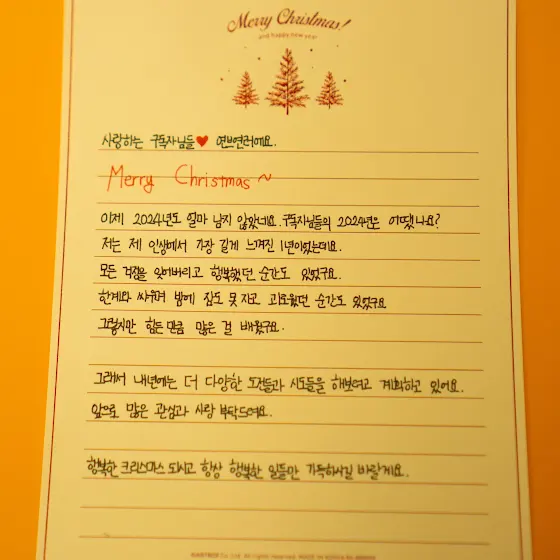 Merry Christmas!
and happy new year
사랑하는 구독자님들♥ 연브연러에요.
Merry Christmas~
이제 2024년도 얼마 남지 않았네요. 구독자님들의 2024년은 어땠나요?
저는 제 인생에서 가장 길게 느껴진 1년이었는데요.
모든 걱정을 잊어버리고 행복했던 순간도 있었구요
한계와 싸우며 밤에 잠도 못 자고 괴로웠던 순간도 있었구요
그렇지만 힘든 만큼 많은 걸 배웠구요.
그래서 내년에는 더 다양한 도전들과 시도들을 해보려고 계획하고 있어요.
앞으로 많은 관심과 사랑 부탁드려요.
행복한 크리스마스 되시고 항상 행복한 일들만 가득하시길 바랄게요.
Co., Ltd. All rights reserved. MADE IN KOREA